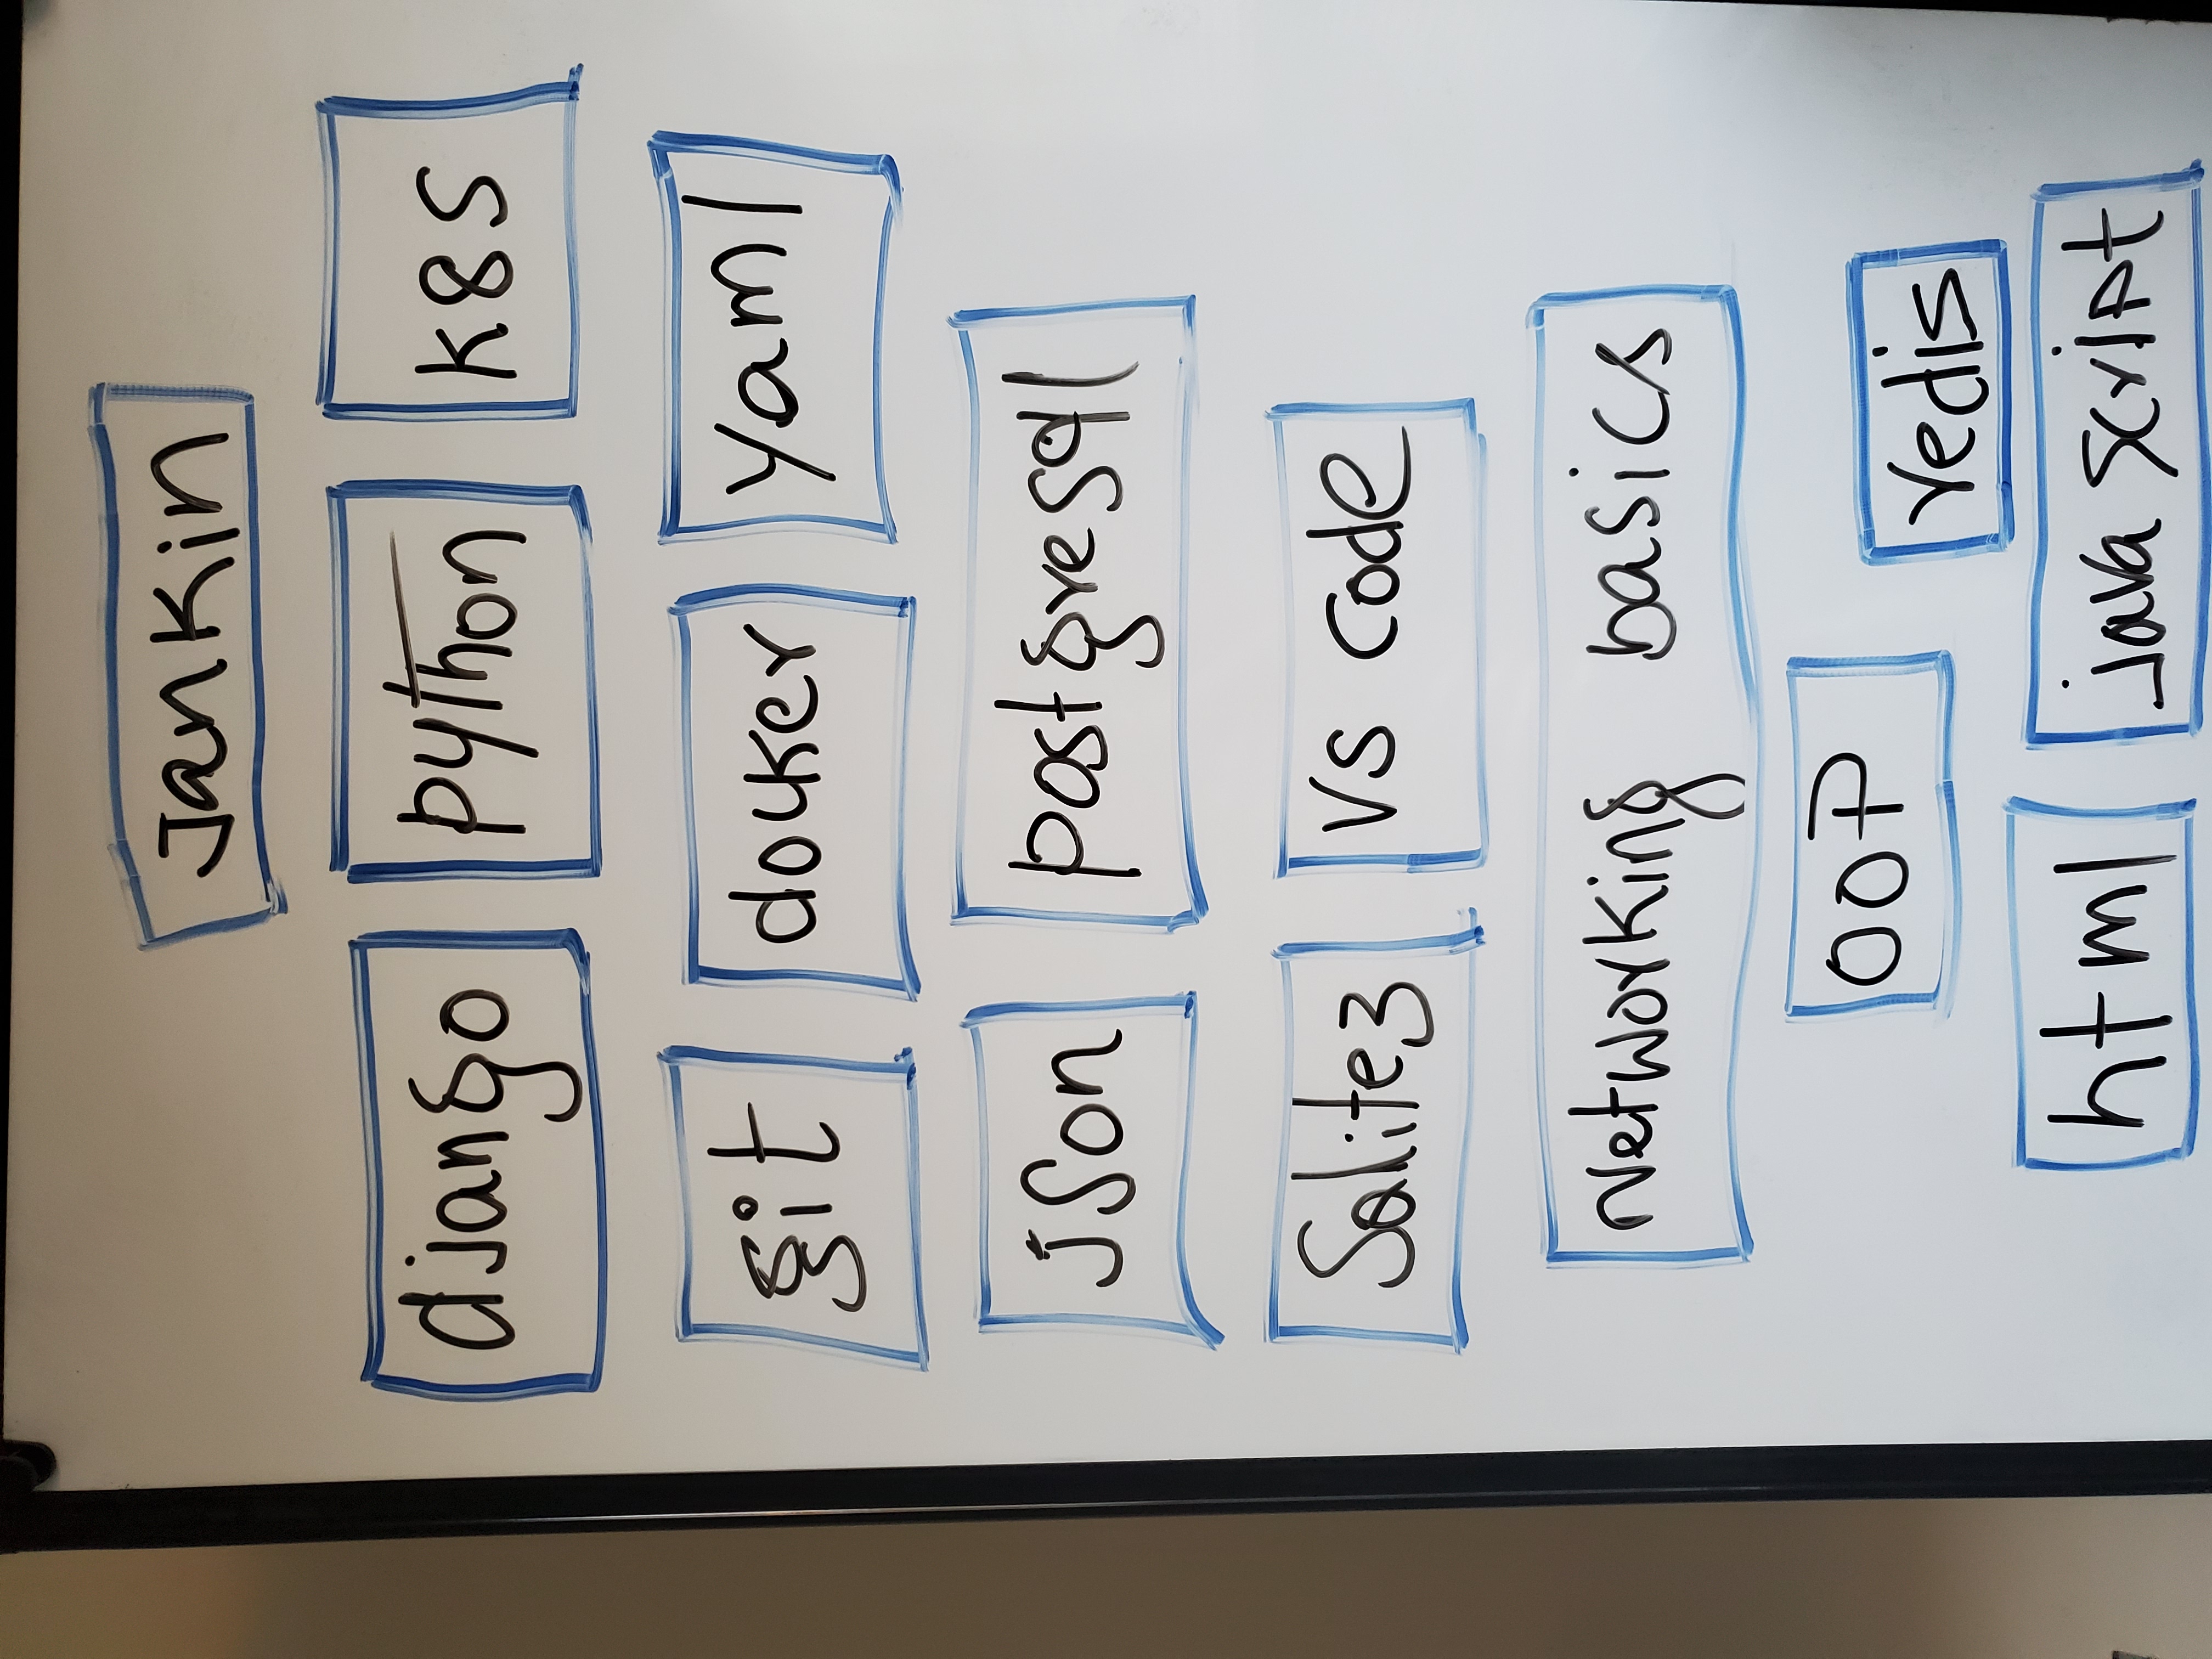 Jankin
django python k8s
git docker yaml
json postgresql
Sqlite3 vs code
Networking basics
OOP
redis
html java script